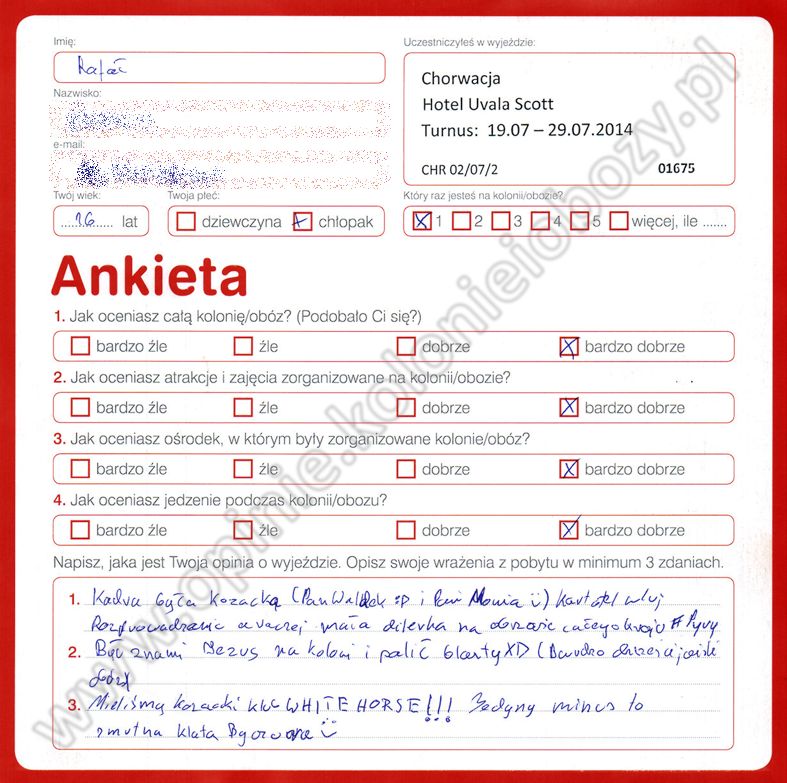 Imię:
Rafał
Uczestniczyłeś w wyjeździe:
Chorwacja
Hotel Uvala Scott
Turnus: 19.07 – 29.07.2014
CHR 02/07/2 01675
Nazwisko:
e-mail:
Twój wiek:
16 lat
Twoja płeć:
dziewczyna X chłopak
Który raz jesteś na kolonii/obozie?
X 1 2 3 4 5 więcej, ile .......
Ankieta
1. Jak oceniasz całą kolonię/obóz? (Podobało Ci się?)
bardzo źle źle dobrze X bardzo dobrze
2. Jak oceniasz atrakcje i zajęcia zorganizowane na kolonii/obozie?
bardzo źle źle dobrze X bardzo dobrze
3. Jak oceniasz ośrodek, w którym były zorganizowane kolonie/obóz?
bardzo źle źle dobrze X bardzo dobrze
4. Jak oceniasz jedzenie podczas kolonii/obozu?
bardzo źle źle dobrze X bardzo dobrze
Napisz, jaka jest Twoja opinia o wyjeździe. Opisz swoje wrażenia z pobytu w minimum 3 zdaniach.
1. Kadra była kozacka (Pan :P i Pani Monia ü)
mała na obozie całego
2. Był z nami Jezus na koloni i palić blanty XD (Bardzo
3. Mieliśmy kozacki klub WHITE HORSE!!! Jedyny minus to
smutna klata ü
www.opinie.kolonieiobozy.pl